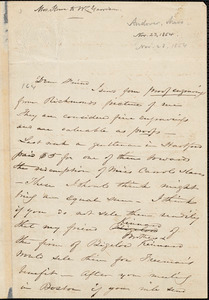 Mrs. Stowe to Wm Garrison
Andover, Mass.
Nov. 28, 1854
Nov. 28, 1854
Dear Friend
I send four proof engravings
from Richmonds picture of me
They are considered fine engravings
and are valuable as proofs —
Last week a gentleman in Hartford
paid $5 for one of them towards
the redemption of Miss
— These I should think might
bring an equal sum — I think
if you do not sell them readily
that my friend
Kinnard
Brothers of
the firm of Bigelow Kinnard
would sell them for
benefit — After your meeting
in Boston if you will send